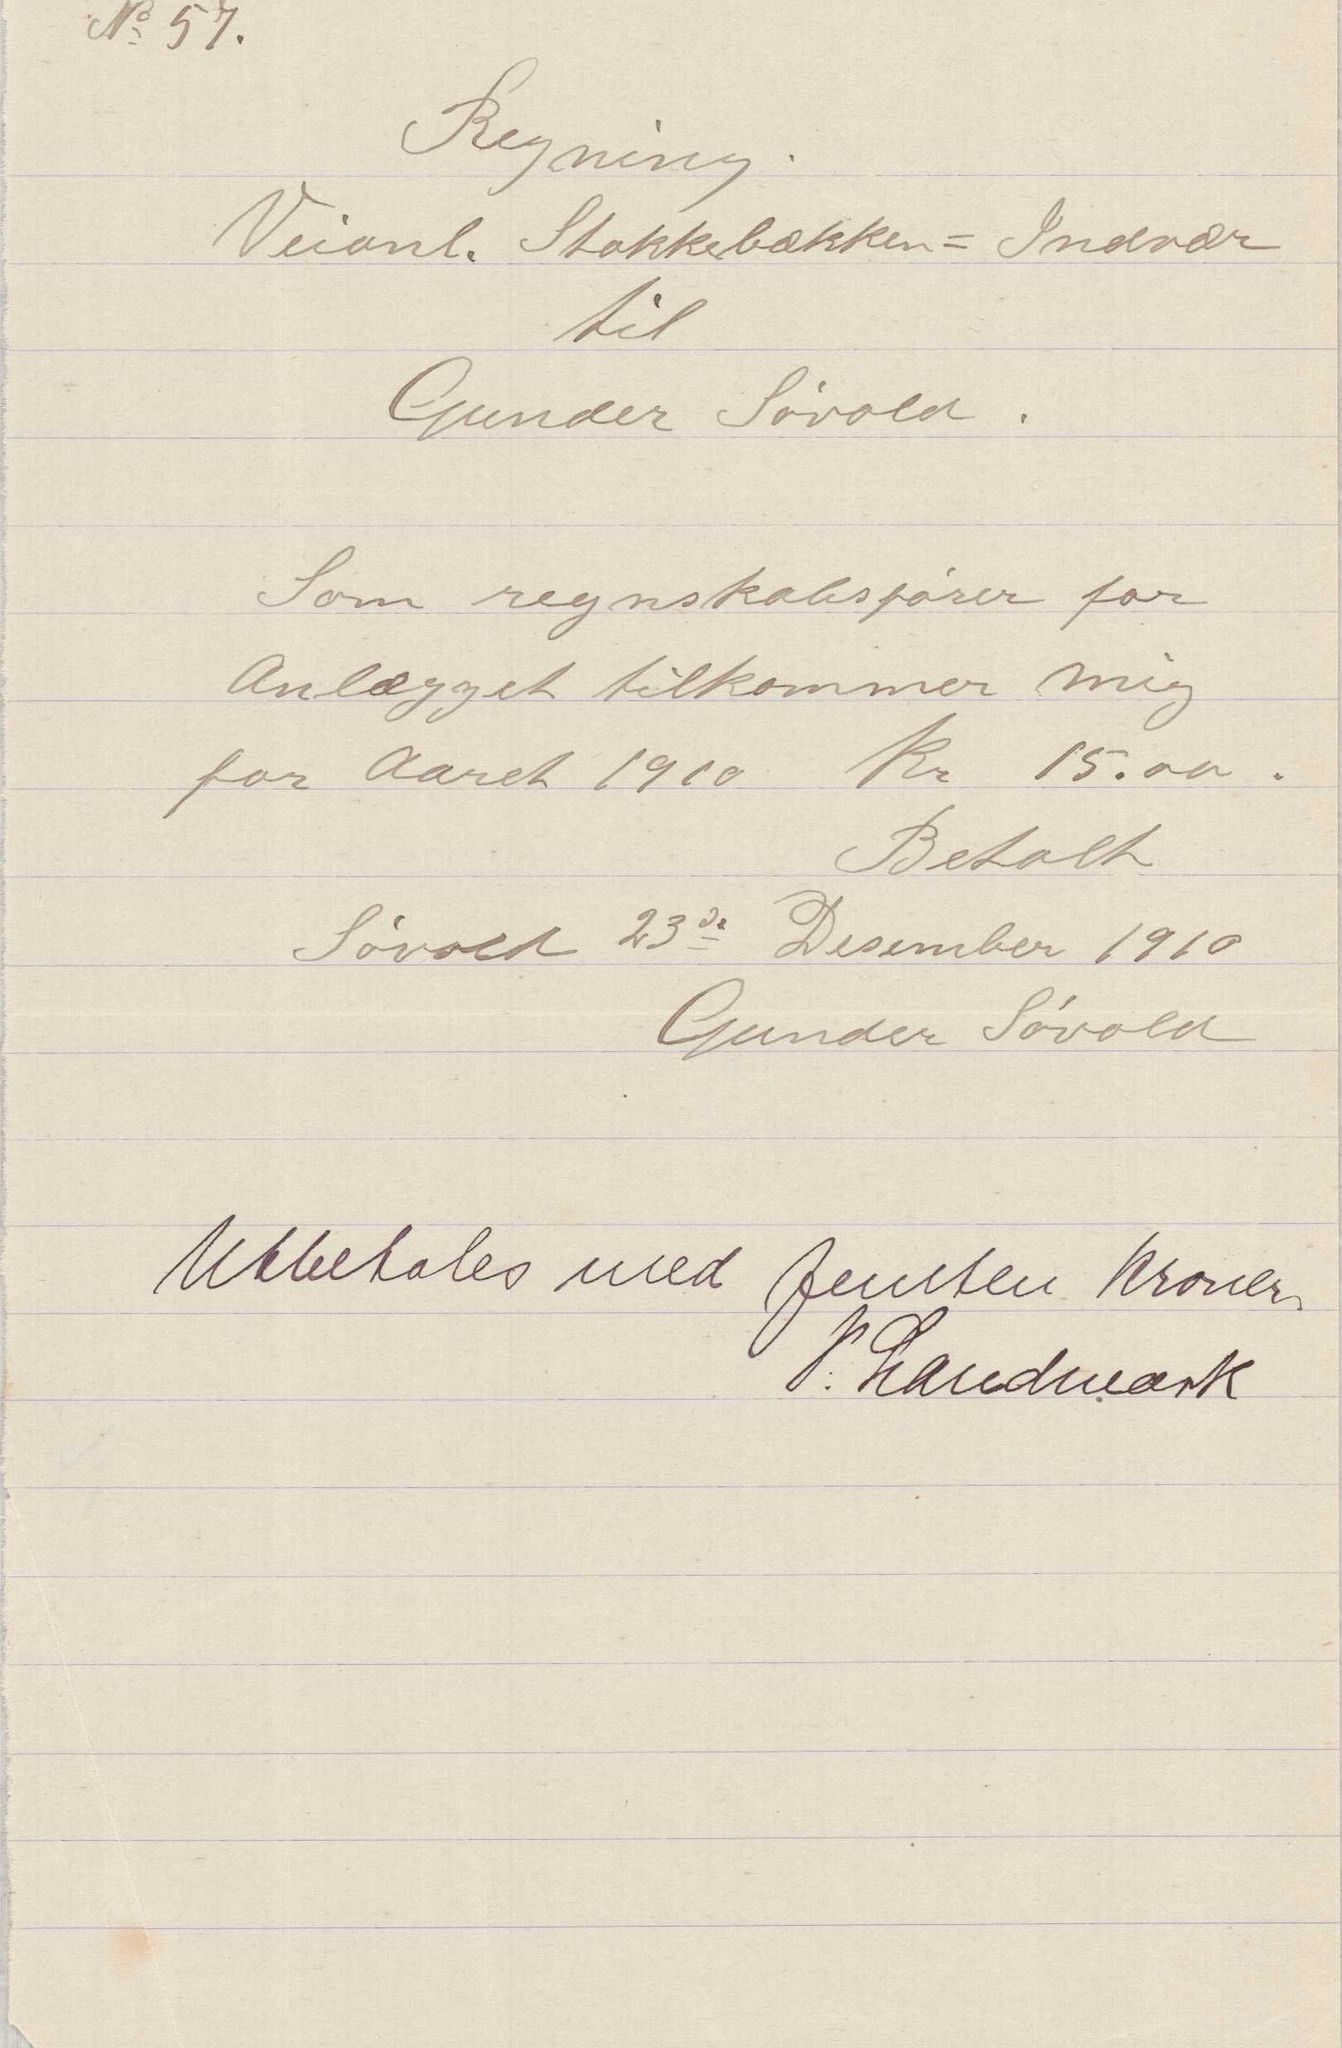 No 57.
Regning.
Veianl. Stokkebækken = Indvær
til
Gunder Sövold.
Som regnskabsförer for
Anlægget tilkommer mig
for Aaret 1910 Kr 15.00.
Betalt
Sövold 23de Desember 1910
Gunder Sövold
Utbetales med femten Kroner
P. Landmark